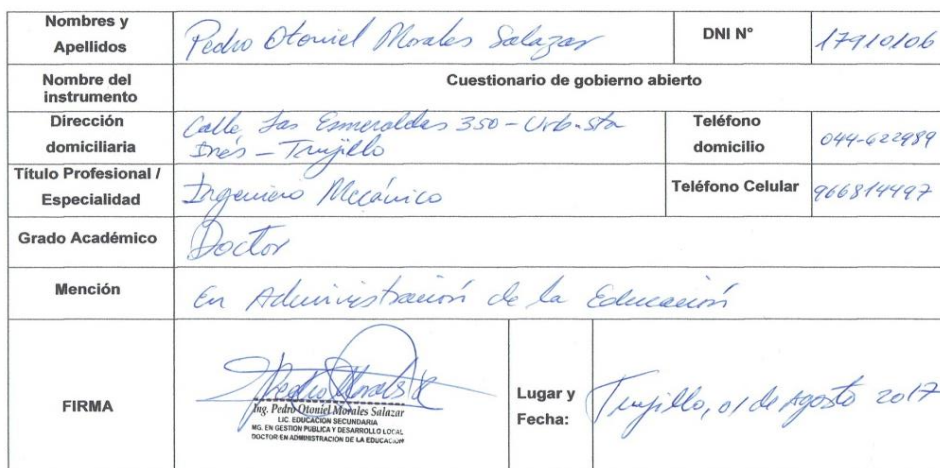 Nombres y
Apellidos
Pedro Otoniel Morales Salazar
DNI N°
17910106
Nombre del
instrumento
Cuestionario de gobierno abierto
Dirección
domiciliaria
Calle Las Esmeraldas 350 - Urb. Sta
Inés - Trujillo
Teléfono
domicilio
044-622989
Título Profesional /
Especialidad
Ingeniero Mecánico
Teléfono Celular
966814497
Grado Académico
Doctor
Mención
En Administración de la Educación
FIRMA
Ing. Pedro Otoniel Morales Salazar
LIC. EDUCACIÓN SECUNDARIA
MG. EN GESTIÓN PÚBLICA Y DESARROLLO LOCAL
DOCTOR EN ADMINISTRACIÓN DE LA EDUCACIÓN
Lugar y
Fecha:
Trujillo, 01 de Agosto 2017